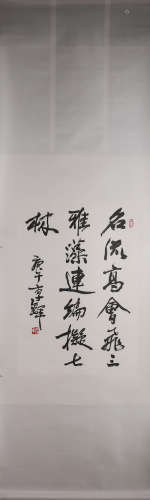 名流高會飛三
雅藻連編擬七
林
庚午享輝